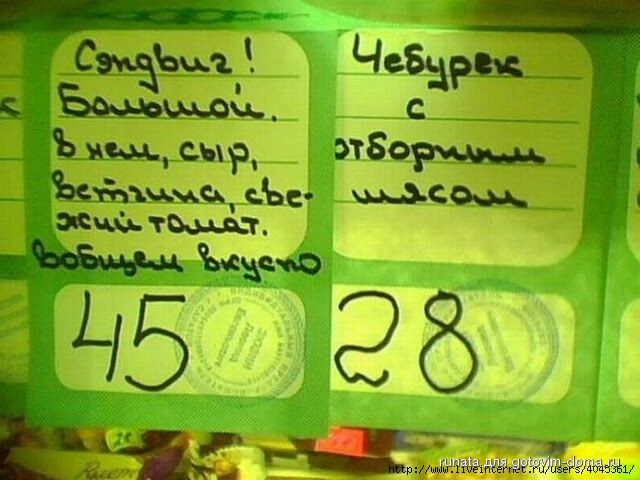 Сэндвиг!
Большой.
В нем, сыр,
ветчина, све-
жий томат.
вобщем вкусно
45
Чебурек
с
отборным
мясом
28
runata для gotovim-doma.ru
http://www.liveinternet.ru/users/4045361/